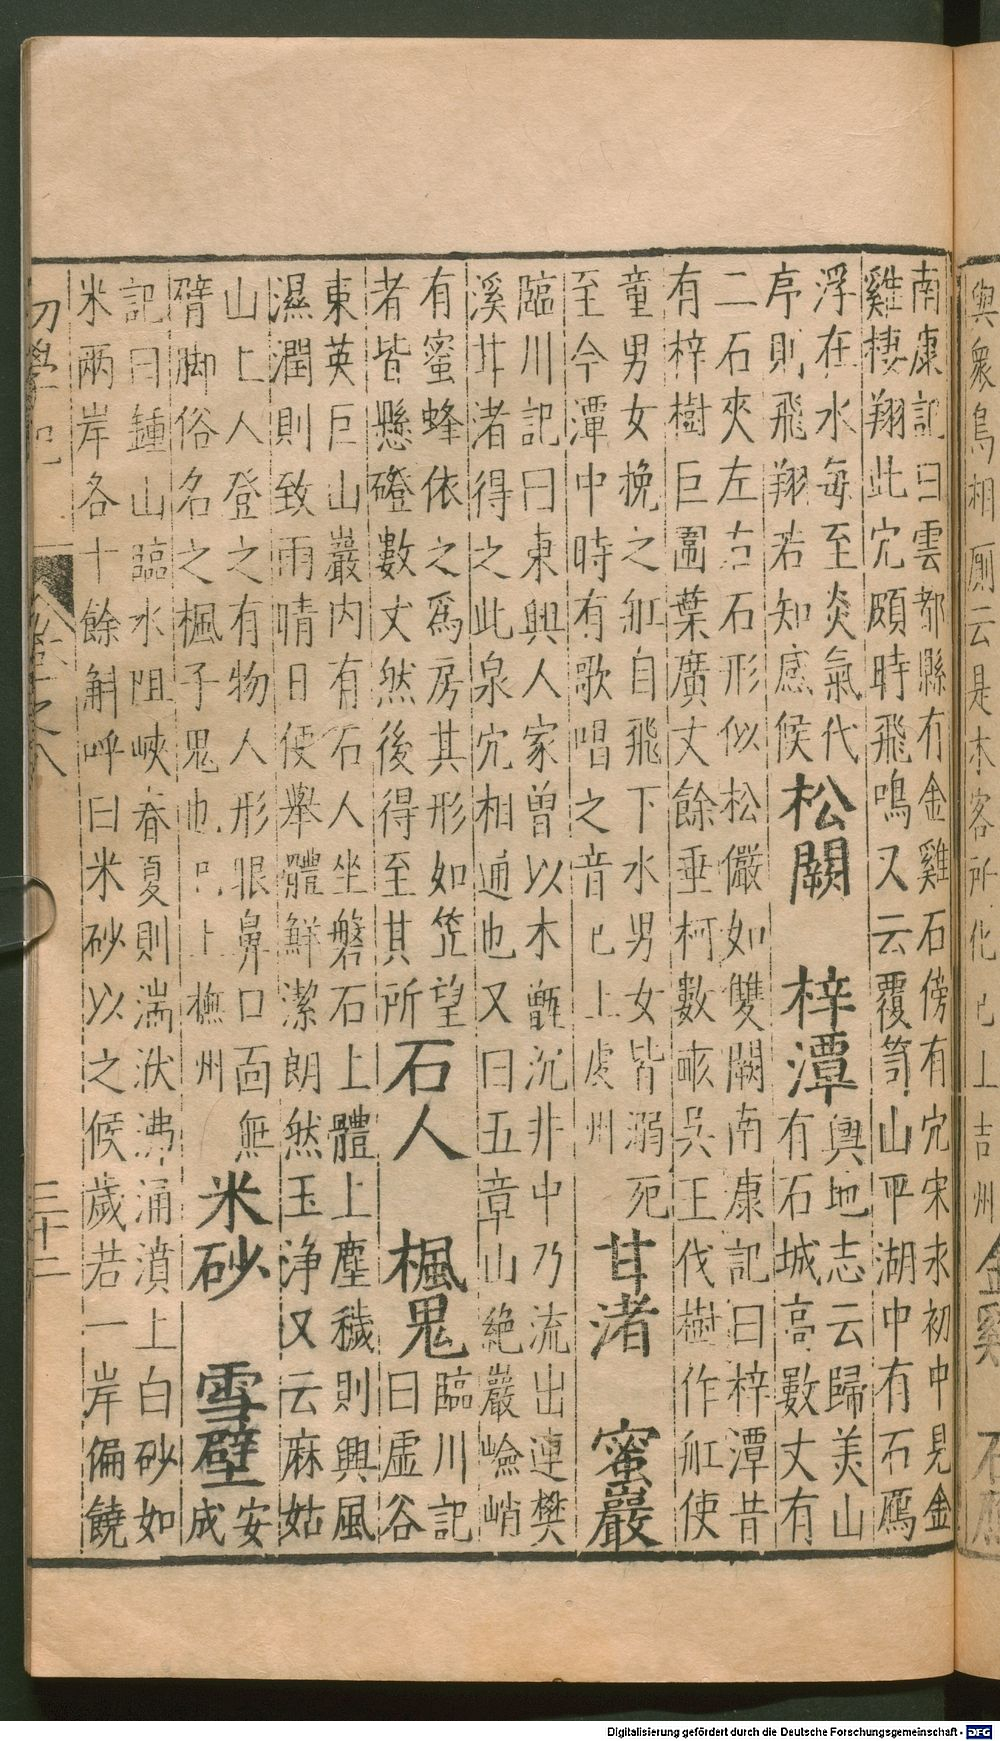 與衆鳥相厠云是木客所化已上吉州
金雞 石鴈
南康記曰雲都縣有金雞石傍有穴宋永初中見金
雞棲翔此穴頗時飛鳴又云覆笥山平湖中有石鴈
浮在水每至炎氣代
序則飛翔若知感候
松闕 梓潭
輿地志云歸美山
有石城高數丈有
二石夾左右石形似松儼如雙闕南康記曰梓潭昔
有梓樹巨圍葉廣丈餘垂柯數畝吳王伐樹作舡使
童男女挽之舡自飛下水男女皆溺死
至今潭中時有歌唱之音已上虔州
甘渚 蜜巖
臨川記曰東興人家曾以木甑沉非中乃流出連樊
溪廾渚得之此泉穴相通也又曰五章山絶巖嶮峭
有蜜蜂依之爲房其形如笠望
者皆懸磴數丈然後得至其所
石人 楓鬼
臨川記
曰虛谷
東英巨山巖内有石人坐磐石上體上塵穢則興風
濕潤則致雨晴日便舉體鮮潔朗然玉淨又云麻姑
山上人登之有物人形眼鼻口面無
臂脚俗名之楓子鬼也已上撫州
米砂 雪壁
安
成
記曰鍾山臨水阻峽春夏則湍洑沸涌濆上白砂如
米兩岸各十餘斛呼曰米砂以之候歲若一岸偏饒
初學記 卷之八 三十二
Digitalisierung gefördert durch die Deutsche Forschungsgemeinschaft - DFG